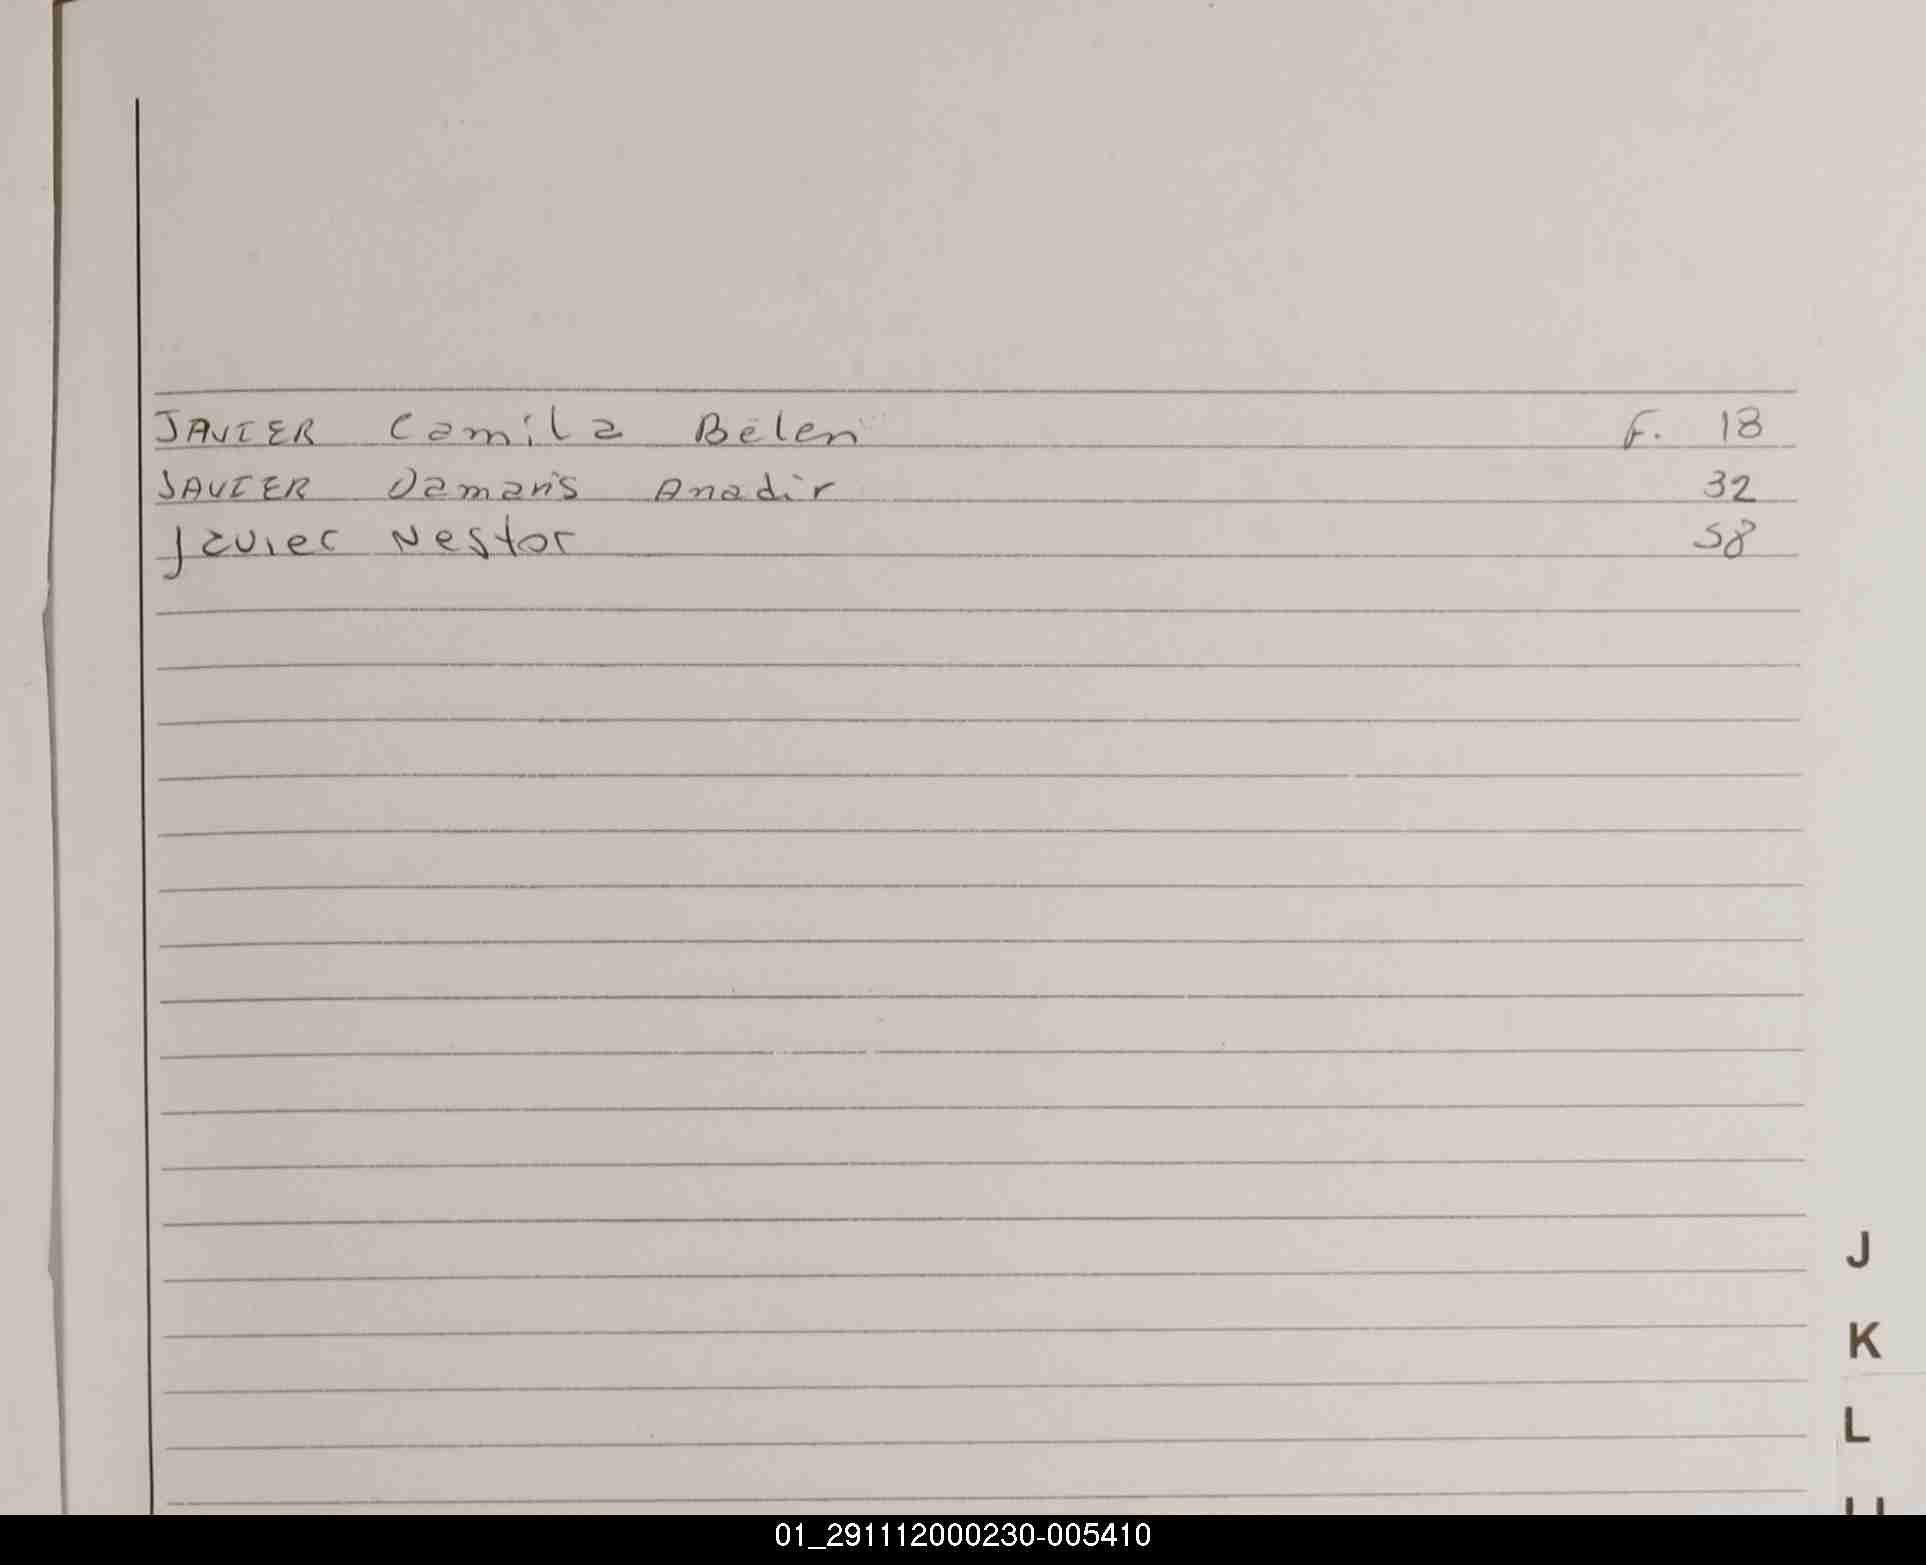 JAVIER Camila Belen F. 18
JAVIER Damaris Anadir 32
Javier Nestor 58
J
K
L
01_291112000230-005410